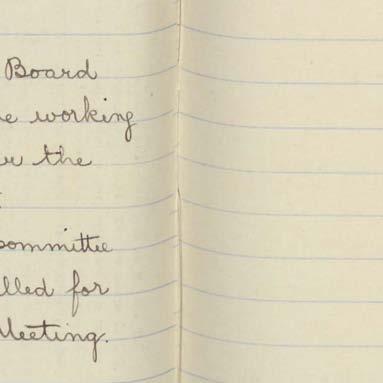 Board
e working
the
committee
lled for
Meeting.